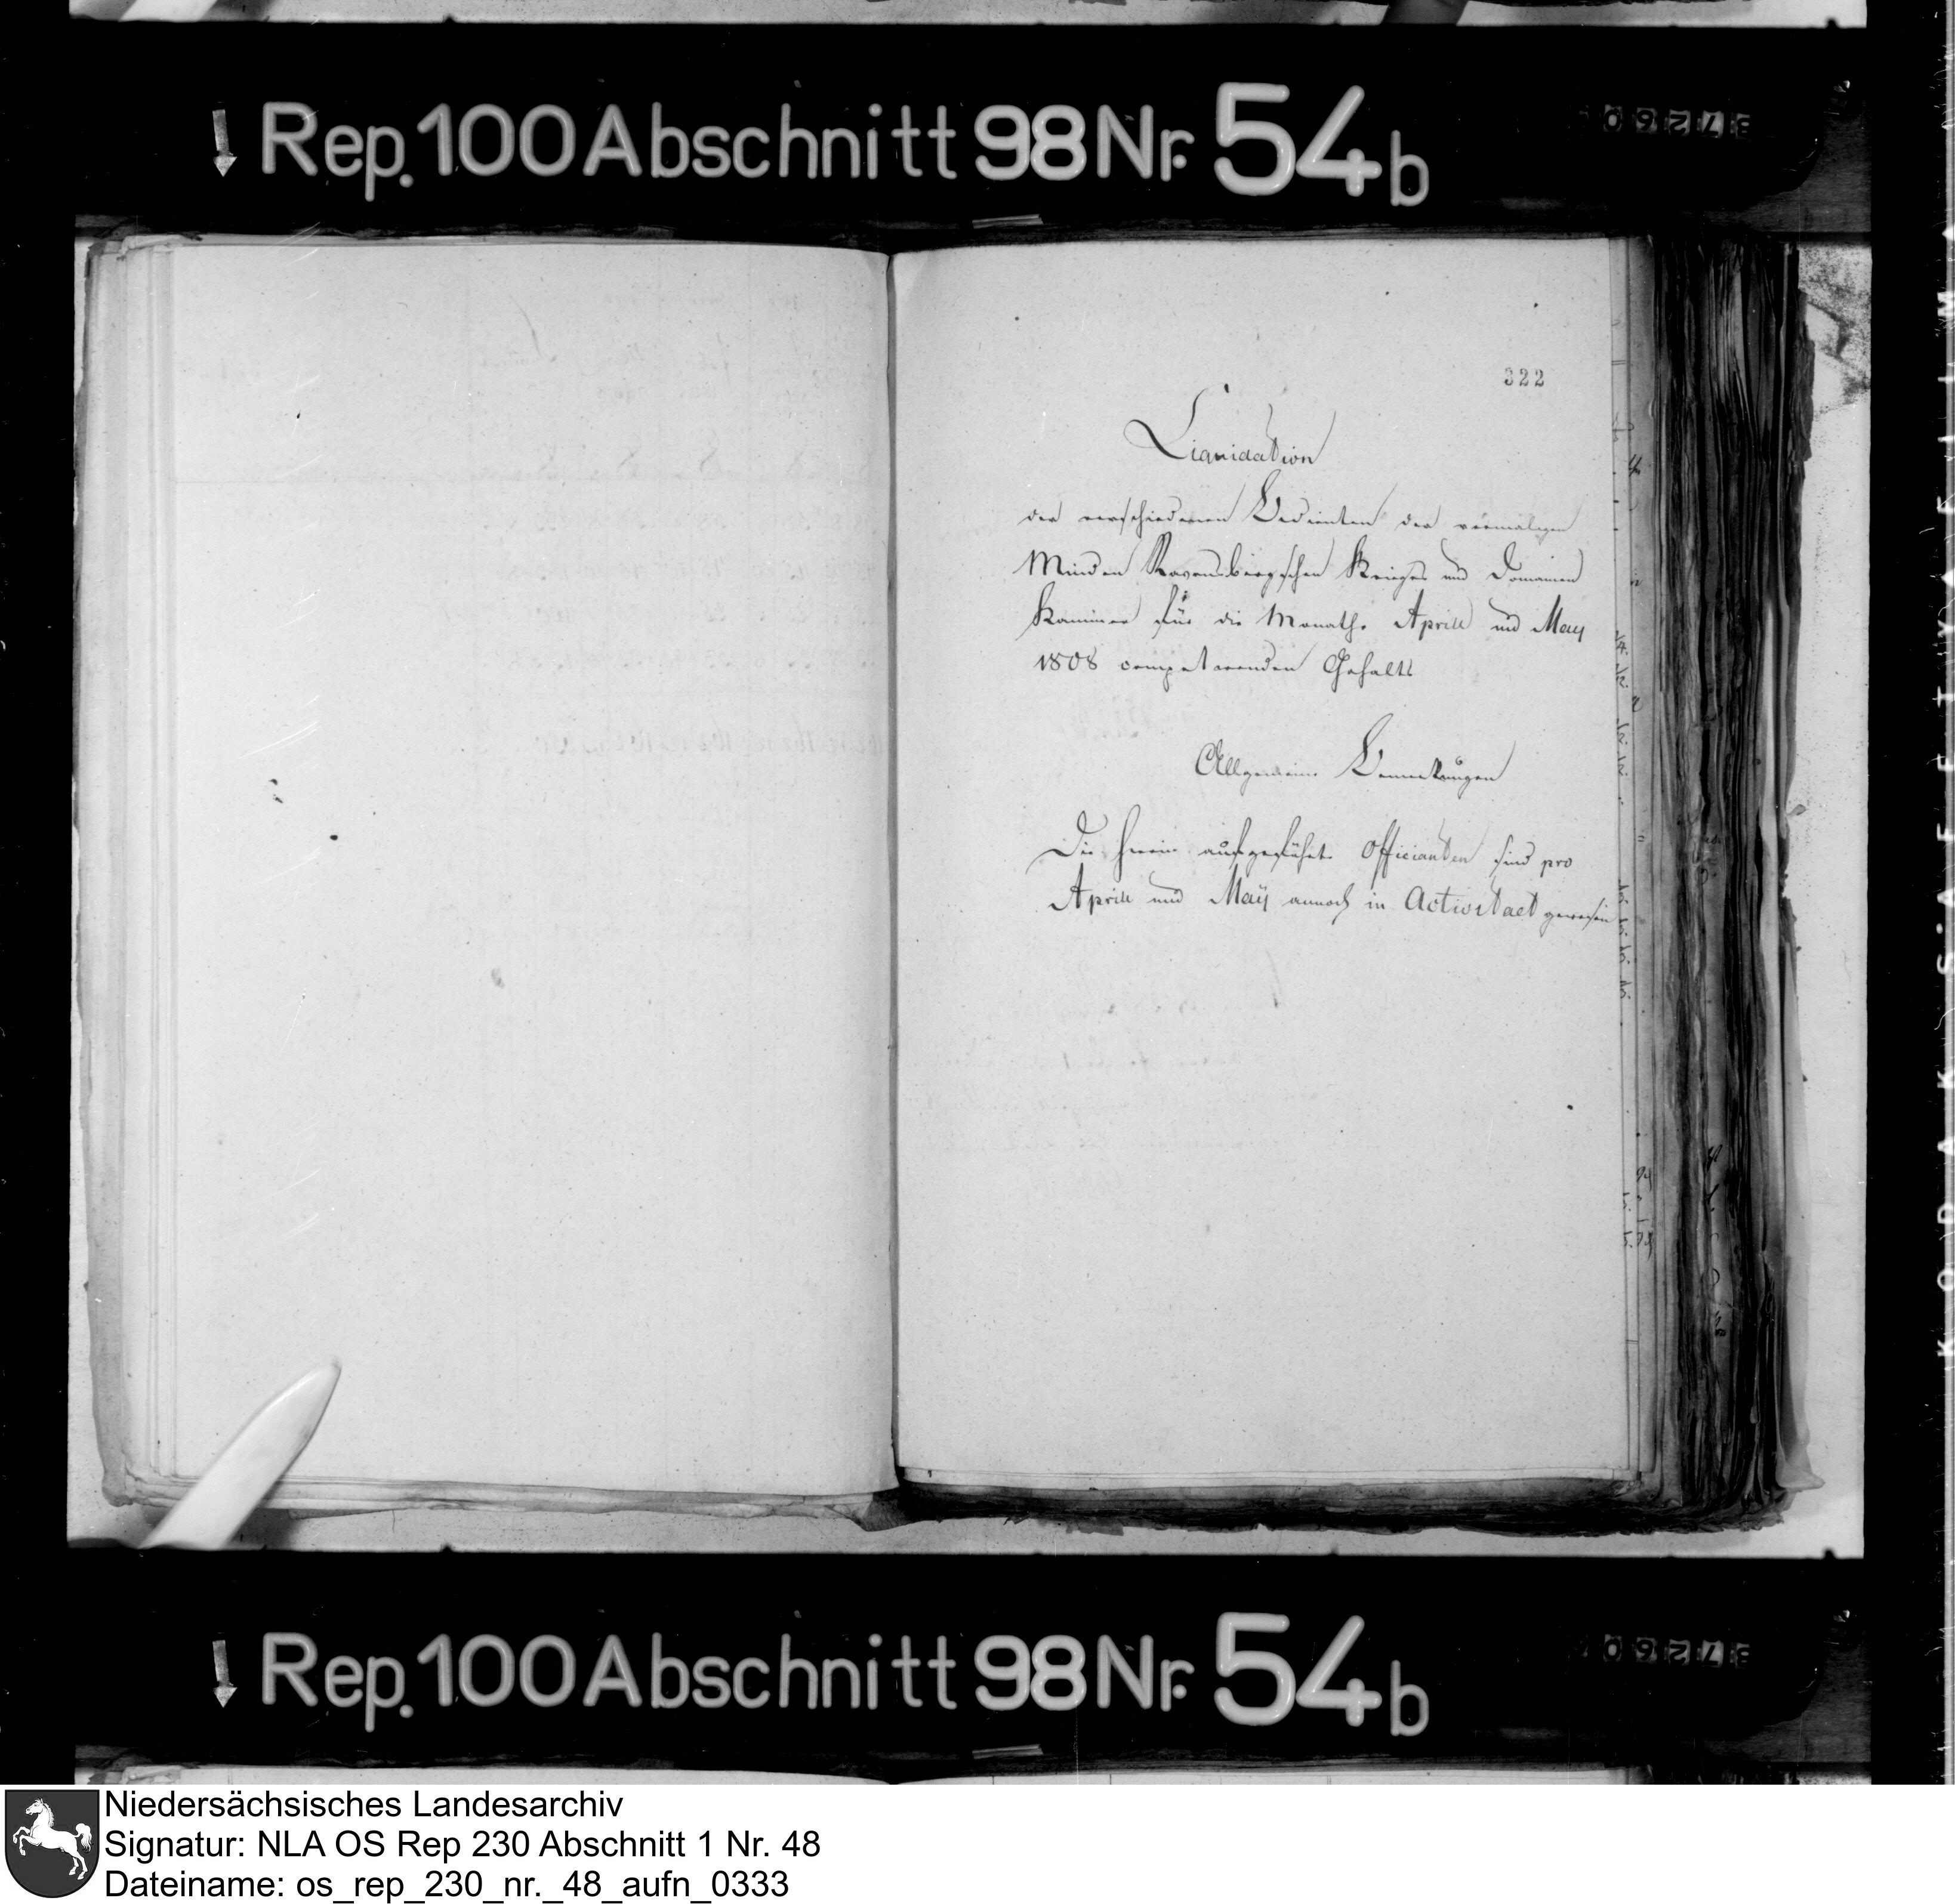 Rep. 100 Abschnitt 98 Nr. 54b
322
Liquidation
der verschiedenen Bedienten der vormaligen
Minden Ravensbergschen Krieges und Domainen
Kammer für die Monathe Aprill und May
1808 competirenden Gehalts
Allgemeine Bemerkungen
Die hierin aufgeführte Officianten sind pro
Aprill und Maÿ annoch in Activitaet gewesen
Rep. 100 Abschnitt 98 Nr. 54b
KODAK SAFETY FILM
Niedersächsisches Landesarchiv
Signatur: NLA OS Rep 230 Abschnitt 1 Nr. 48
Dateiname: os_rep_230_nr._48_aufn_0333